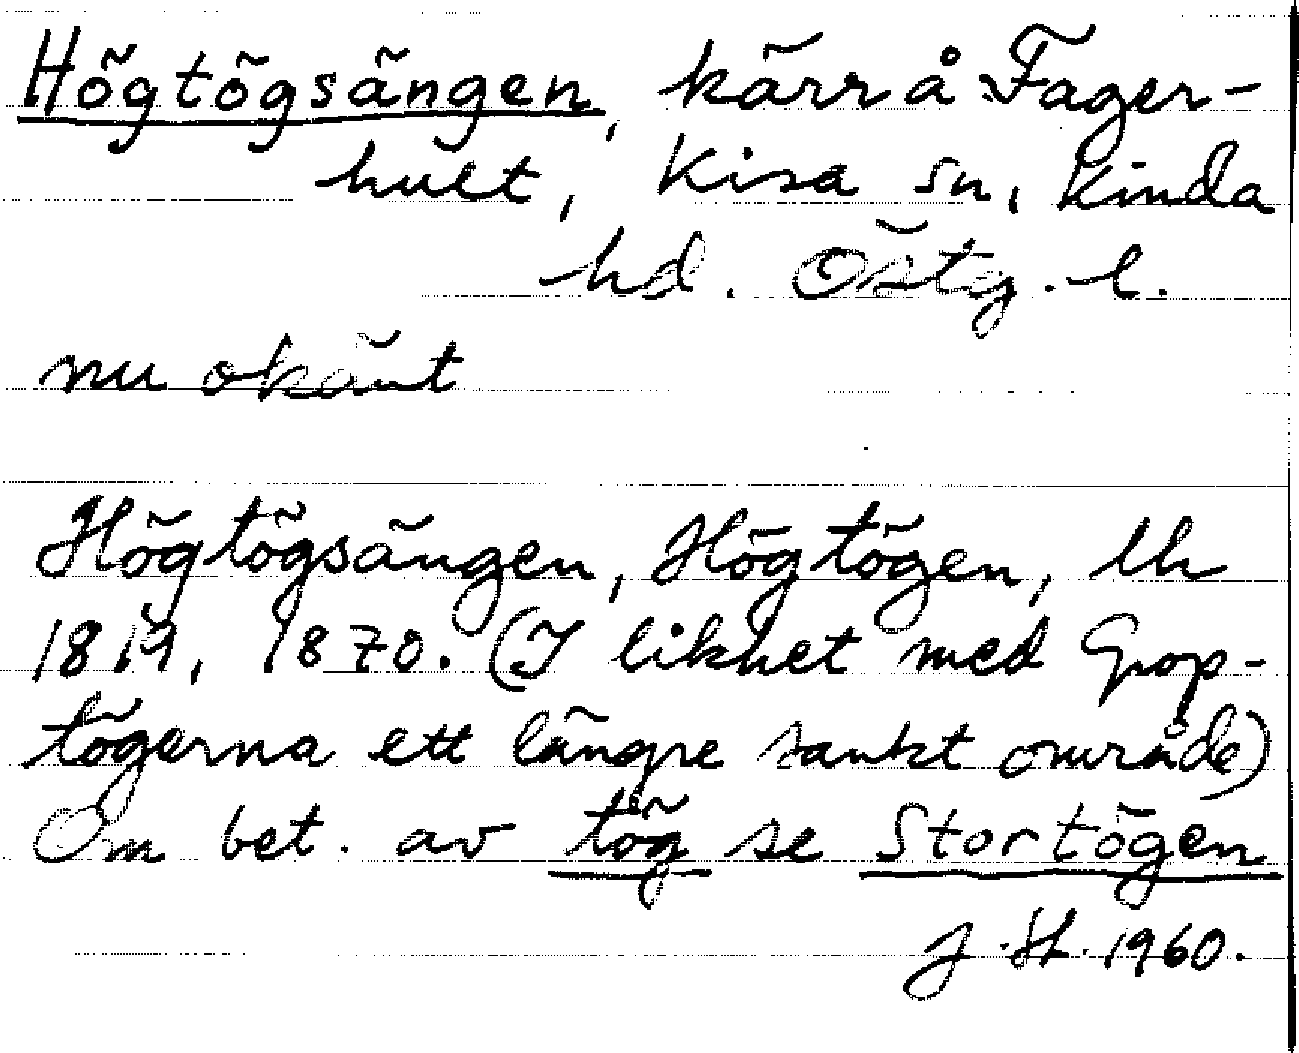 Högtögsängen, kärr å Fager-
hult, Kisa sn, Kinda
hd. Östg. l.
nu okänt
Högtögsängen, Högtögen, lh
1819, 1870. (I likhet med Grop-
tögerna ett längre sankt område)
Om bet. av tög se Stortögen
J. H. 1960.